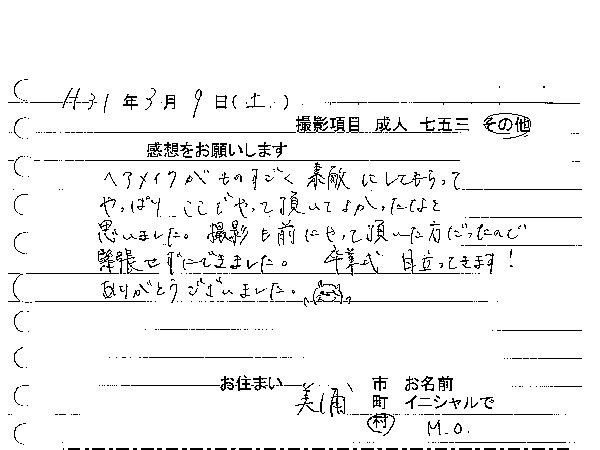 H31年3月9日(土)
撮影項目 成人 七五三 その他
感想をお願いします
ヘアメイクがものすごく素敵にしてもらって
やっぱりここでやって頂いてよかったなと
思いました。撮影も前にやって頂いた方だったので
緊張せずにできました。 卒業式 目立ってきます!
ありがとうございました。
お住まい 美浦 市 お名前
町 イニシャルで
村 M.O.